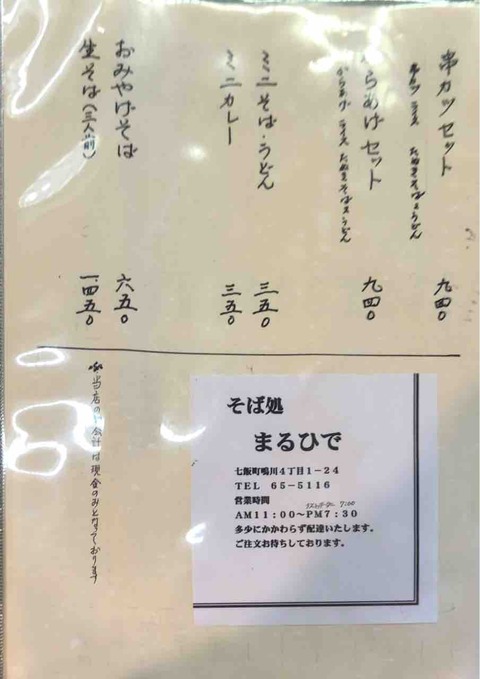 串カツセット 九四〇
串カツ ライス たぬきそばorうどん
からあげセット 九四〇
からあげ ライス たぬきそばorうどん
ミニそば・うどん 三五〇
ミニカレー 三五〇
おみやげそば 六五〇
生そば(三人前) 一、四五〇
当店のお会計は現金のみとなっております
そば処
まるひで
七飯町鳴川4丁目1-24
TEL 65-5116
営業時間 ラストオーダー 7:00
AM11:00~PM7:30
多少にかかわらず配達いたします。
ご注文お待ちしております。